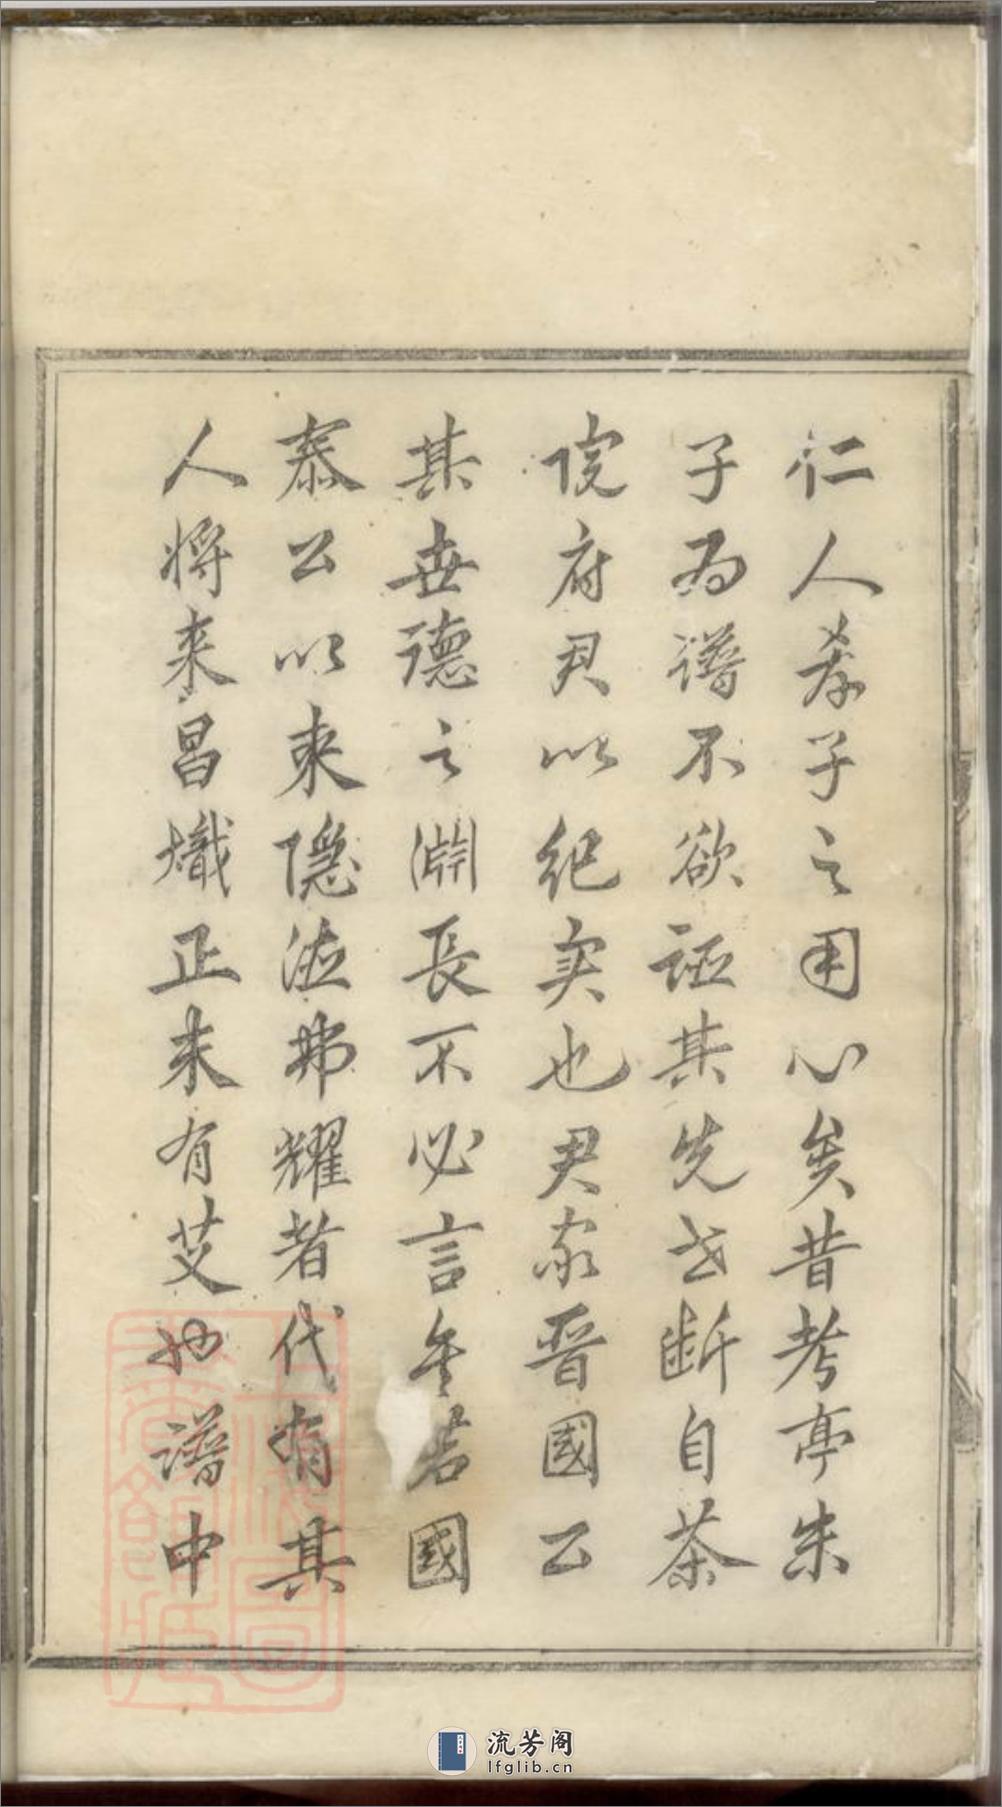 仁人孝子之用心矣昔考亭朱
子為譜不欲誣其先世断自茶
院府君以紀实也君家晋國公
其世德之淵長不必言矣若國
泰公以來隱德弗耀者代有其
人将来昌熾正未有艾也譜中
流芳阁
lfglib.cn